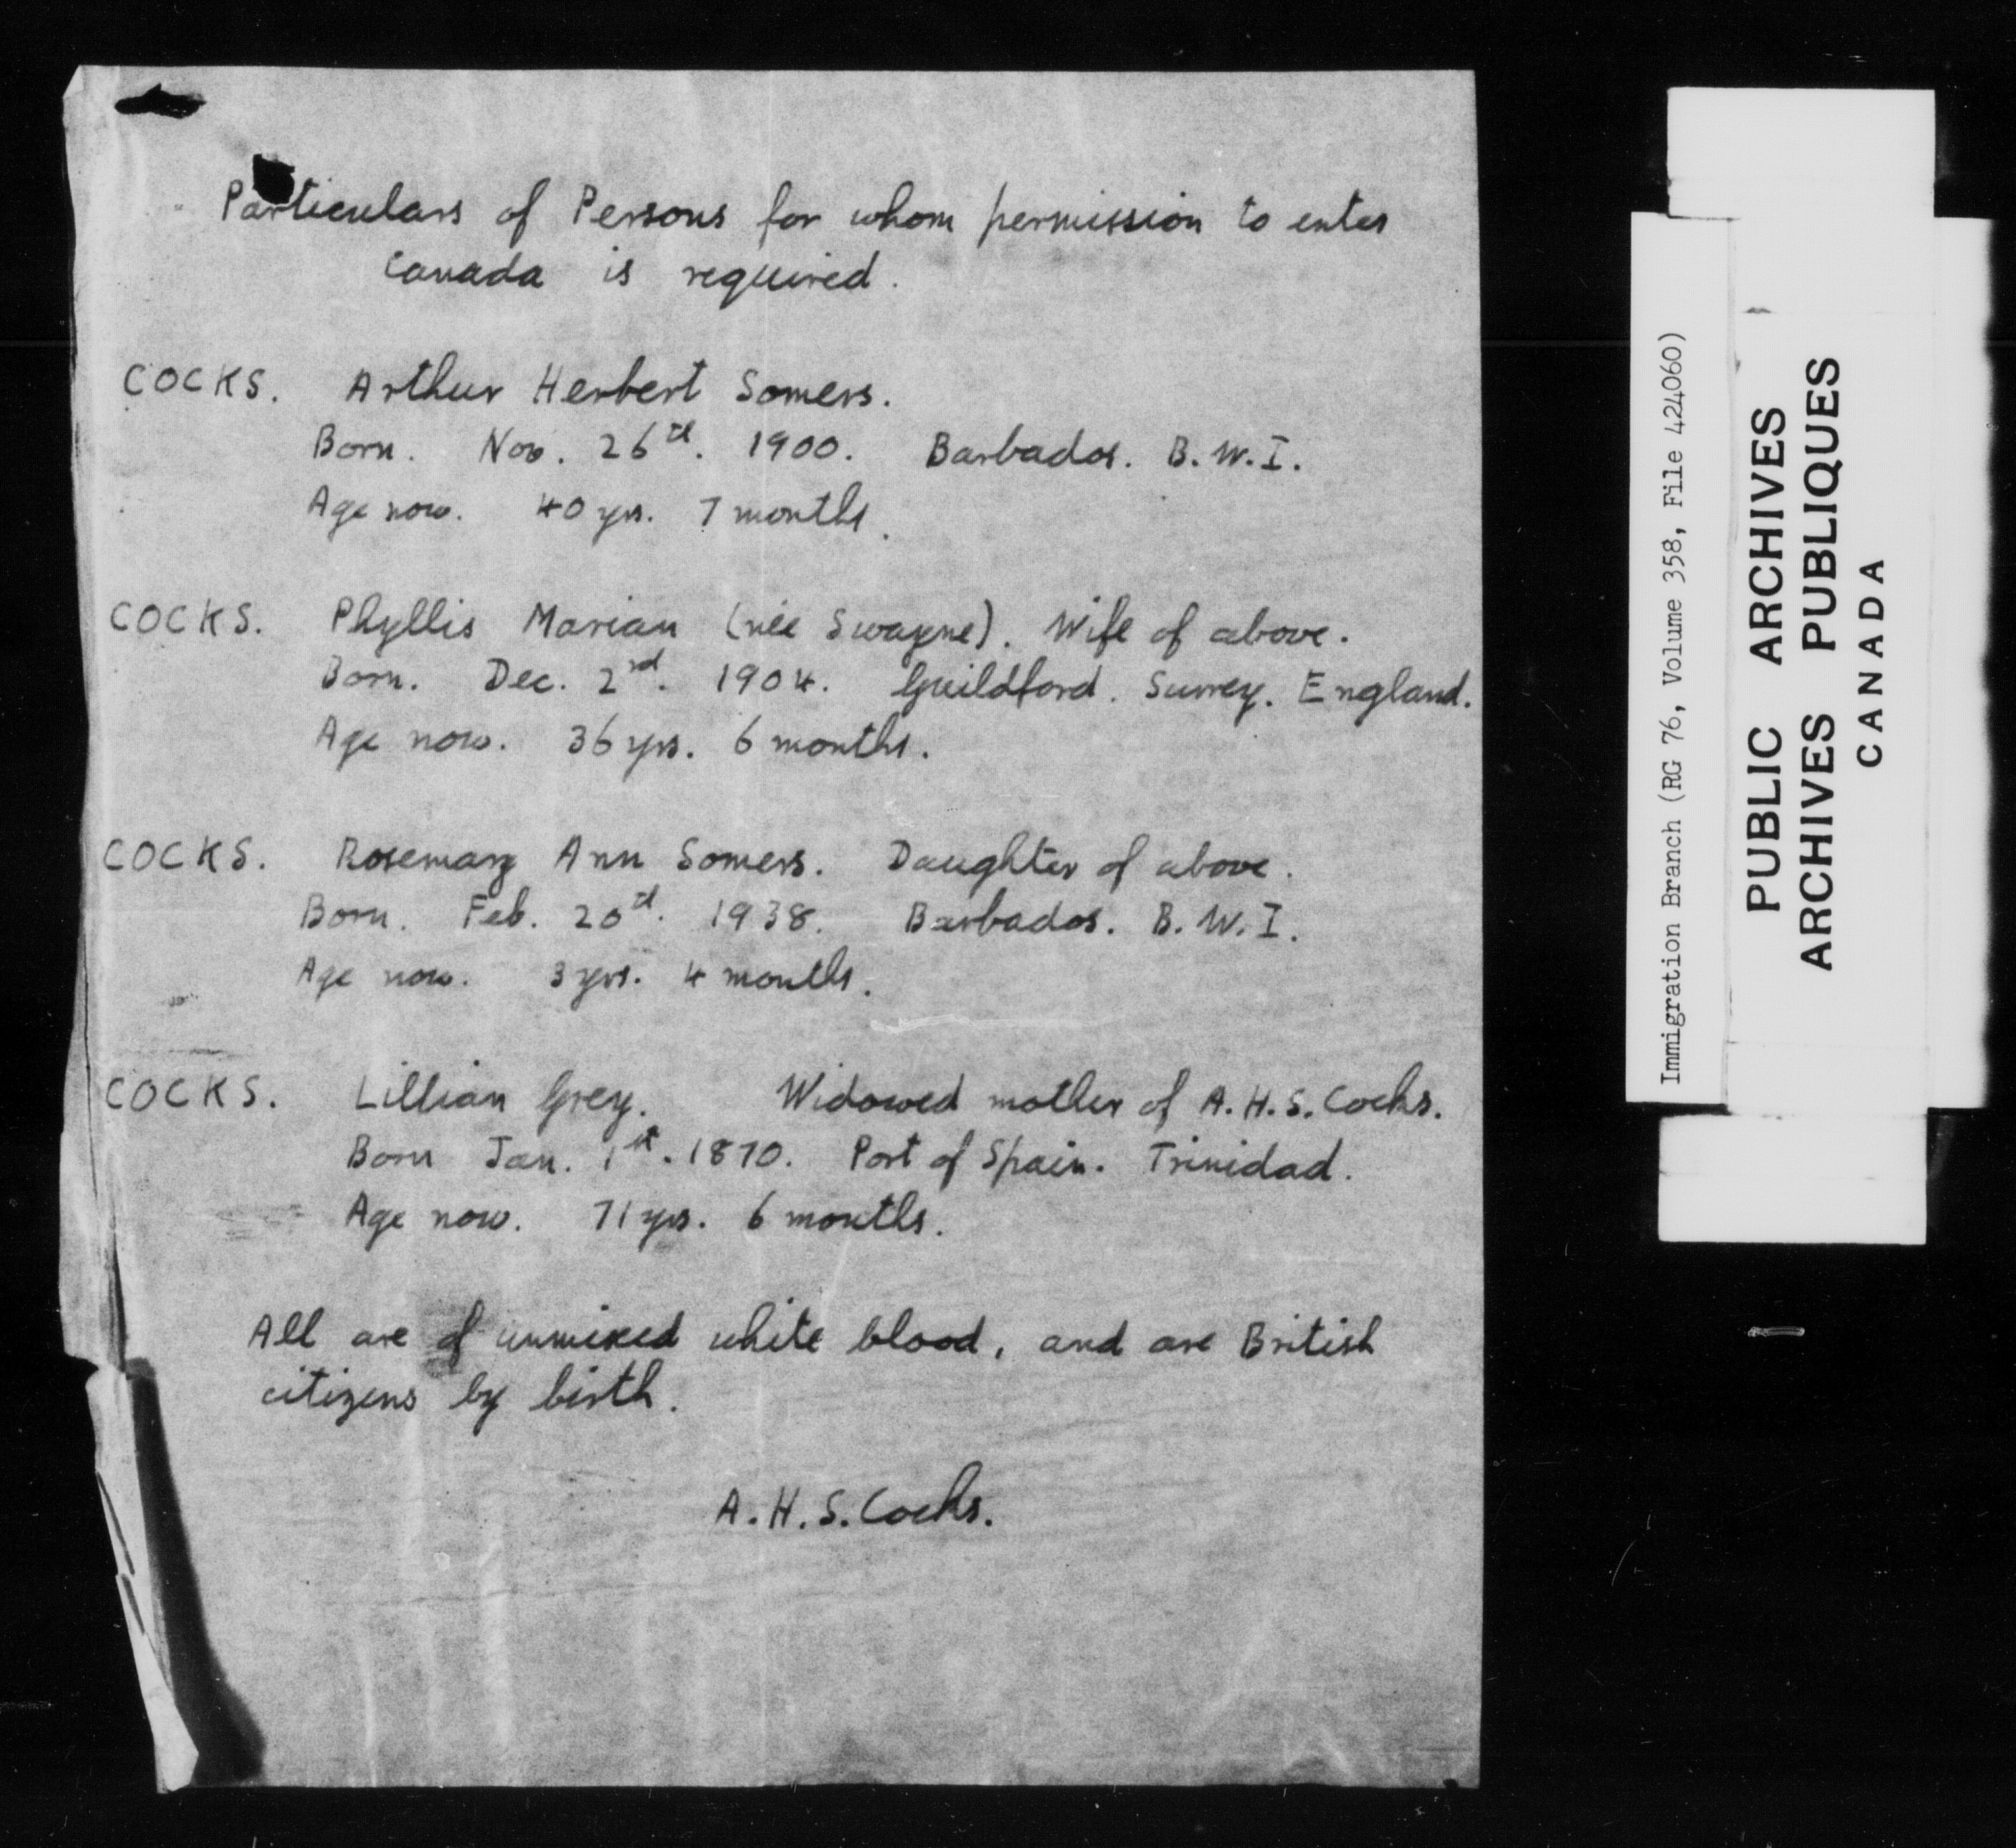 Particulars of Persons for whom permission to enter
Canada is required.
COCKS. Arthur Herbert Somers.
Born. Nov. 26th. 1900. Barbados. B.W.I.
Age now. 40 yrs. 7 months.
COCKS. Phyllis Marian (née Swayne). Wife of above.
Born. Dec. 2nd. 1904. Guildford. Surrey. England.
Age now. 36 yrs. 6 months.
COCKS. Rosemary Ann Somers. Daughter of above.
Born. Feb. 20th. 1938. Barbados. B.W.I.
Age now. 3 yrs. 4 months.
COCKS. Lillian Grey. Widowed mother of A.H.S. Cocks.
Born Jan. 1st. 1870. Port of Spain. Trinidad.
Age now. 71 yrs. 6 months.
All are of unmixed white blood, and are British
citizens by birth.
A.H.S. Cocks.
Immigration Branch (RG 76, Volume 358, File 424060)
PUBLIC ARCHIVES
ARCHIVES PUBLIQUES
CANADA